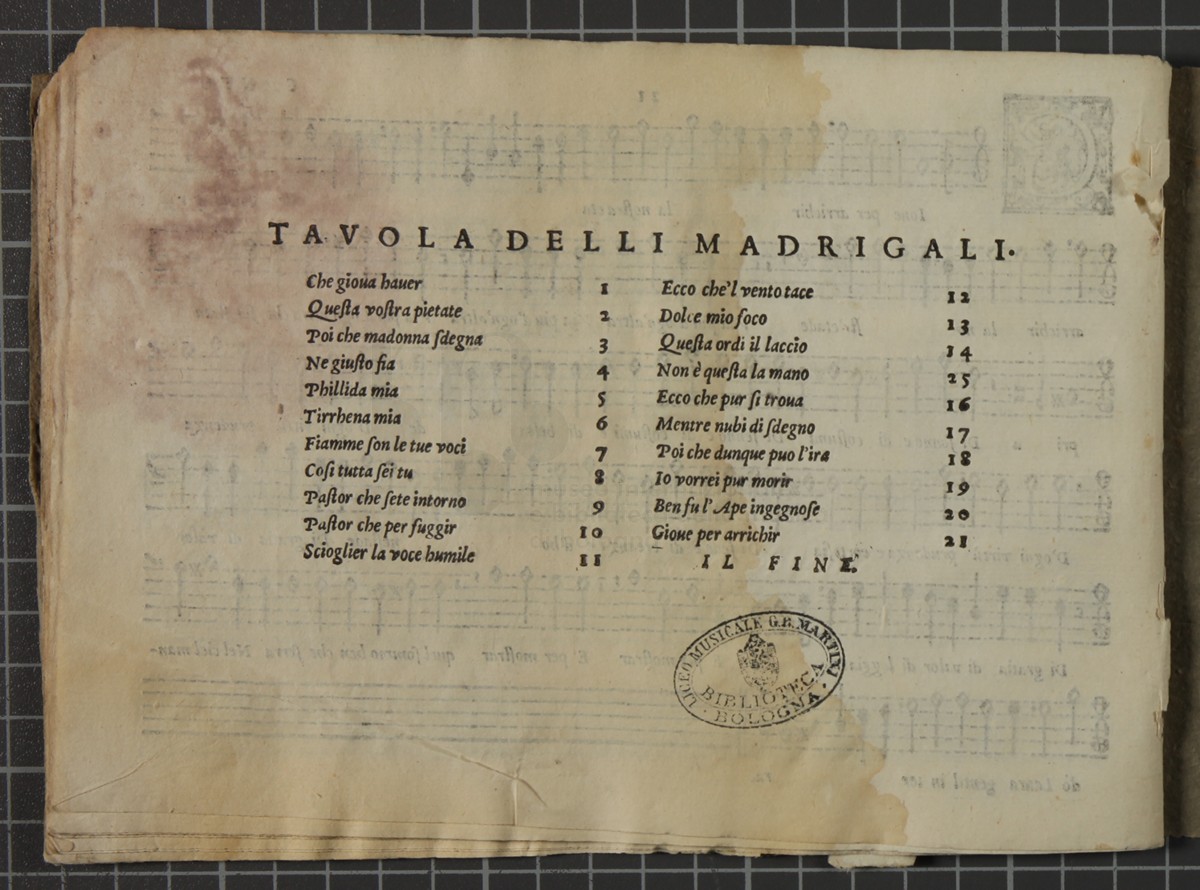 TAVOLA DELLI MADRIGALI.
Che gioua hauer 1
Queſta voſtra pietate 2
Poi che madonna ſdegna 3
Ne giuſto fia 4
Phillida mia 5
Tirrhena mia 6
Fiamme ſon le tue voci 7
Coſi tutta ſei tu 8
Paſtor che ſete intorno 9
Paſtor che per fuggir 10
Scioglier la voce humile 11
Ecco che'l vento tace 12
Dolce mio foco 13
Queſta ordi il laccio 14
Non è queſta la mano 25
Ecco che pur ſi troua 16
Mentre nubi di ſdegno 17
Poi che dunque puo l'ira 18
Io vorrei pur morir 19
Ben fu l'Ape ingegnoſe 20
Gioue per arrichir 21
IL FINE.
LICEO MUSICALE G.B. MARTINI
BIBLIOTECA
BOLOGNA